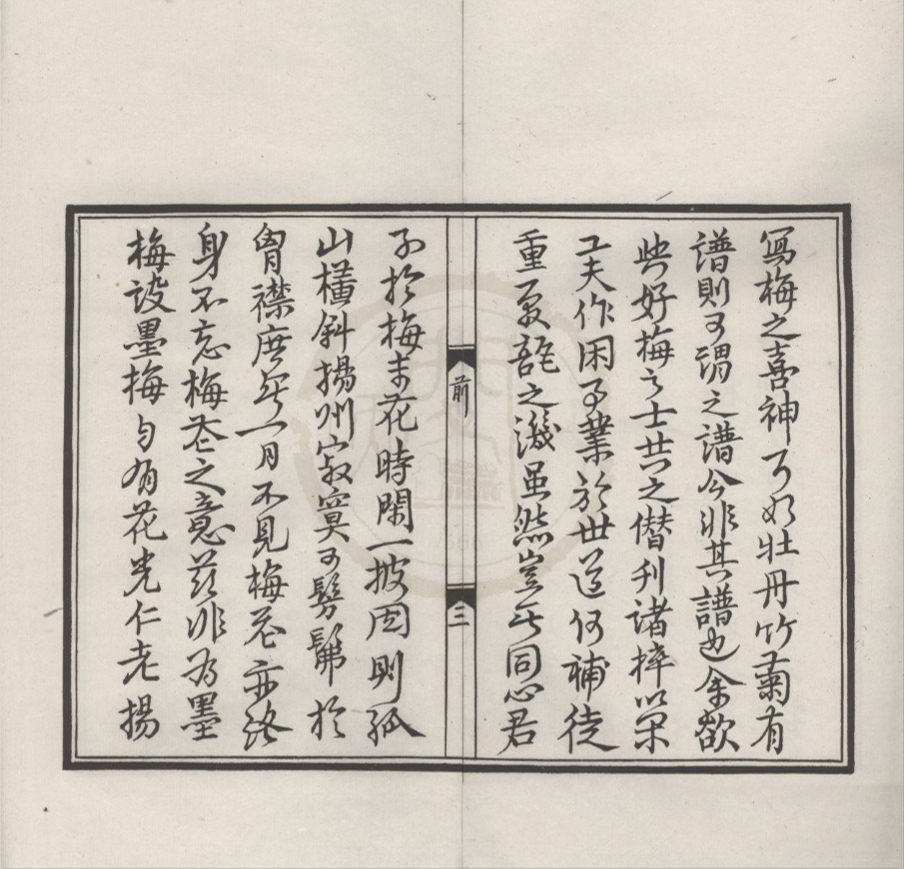 寫梅之喜神可如牡丹竹菊有
譜則可謂之譜今非其譜也余欲
與好梅之士共之僭刊諸梓以閑
工夫作閑事業於世道何補徒
重覆瓿之譏雖然豈無同心君
前
三
子於梅未花時閑一披閱則孤
山橫斜揚州寂寞可髣髴於
胷襟庶無一日不見梅花亦終
身不忘梅花之意茲非為墨
梅設墨梅自有花光仁老揚